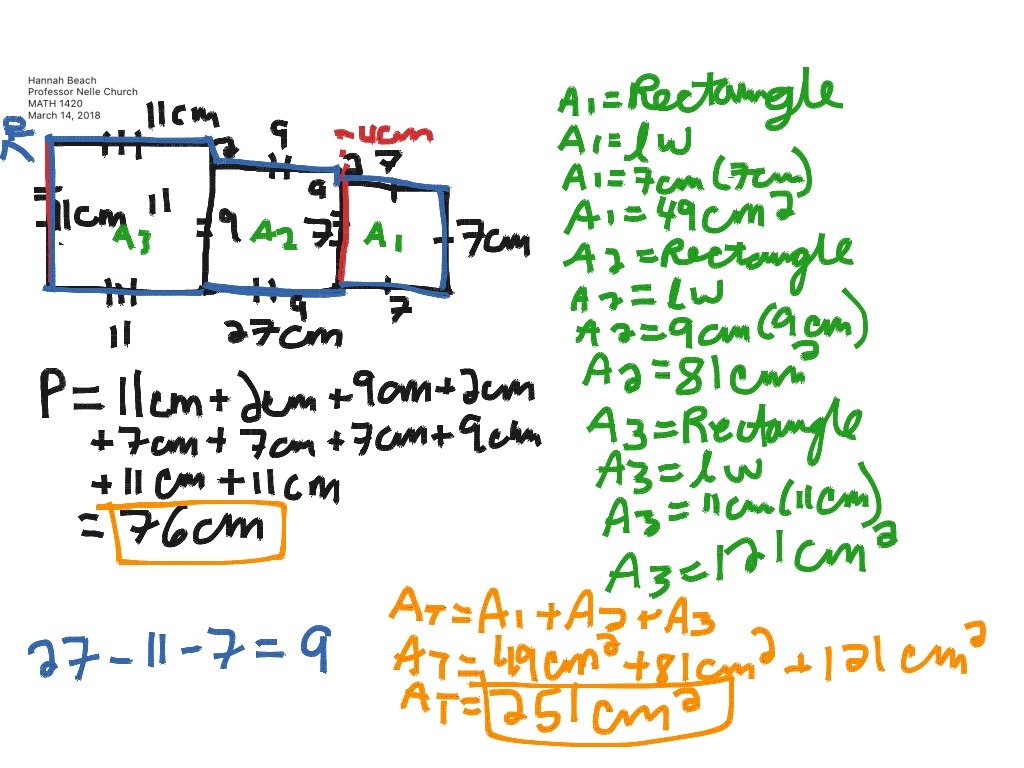 Hannah Beach
Professor Nelle Church
MATH 1420
March 14, 2018
11cm
2
9
-4cm
2
7
9
11cm
11
A3
9
A2
7
A1
7cm
11
27cm
9
7
P = 11cm + 2cm + 9cm + 2cm
+ 7cm + 7cm + 7cm + 9cm
+ 11cm + 11cm
= 76cm
27 - 11 - 7 = 9
A1 = Rectangle
A1 = lw
A1 = 7cm (7cm)
A1 = 49cm²
A2 = Rectangle
A2 = lw
A2 = 9cm (9cm)
A2 = 81cm²
A3 = Rectangle
A3 = lw
A3 = 11cm (11cm)
A3 = 121cm²
AT = A1 + A2 + A3
AT = 49cm² + 81cm² + 121cm²
AT = 251cm²